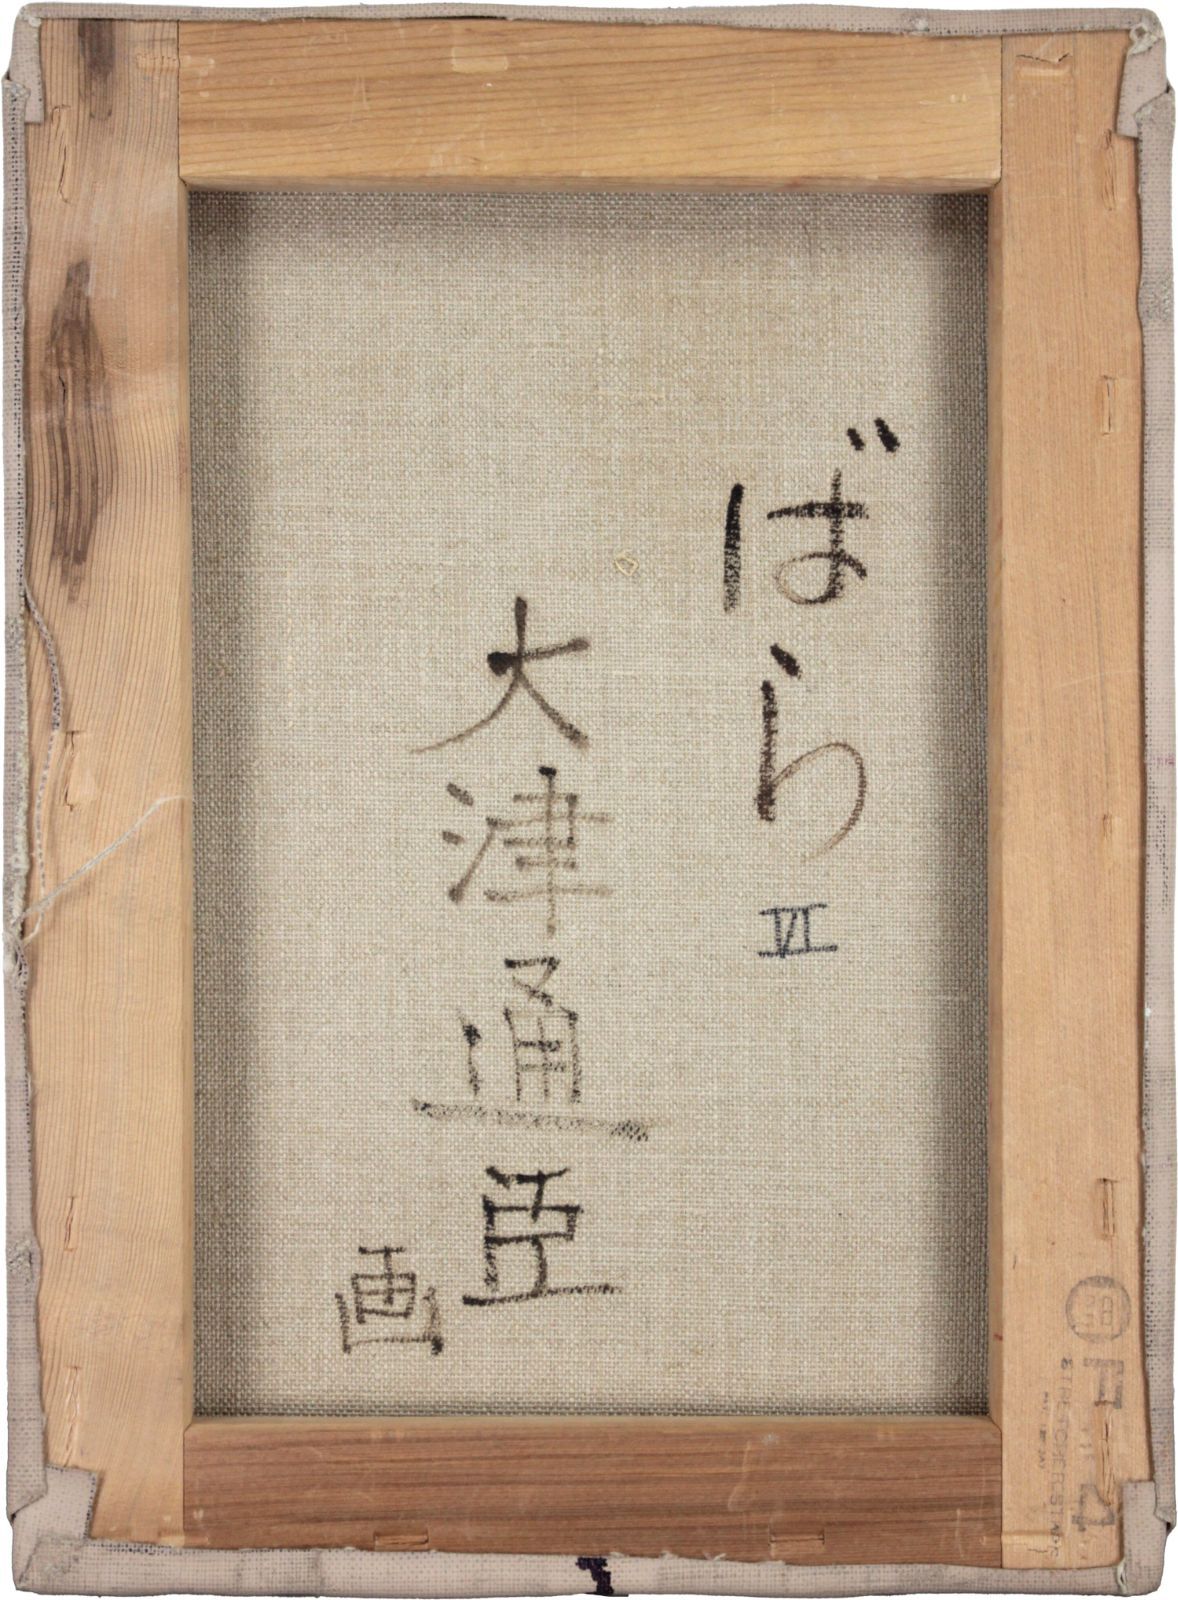 ばら VI
大津通臣
画
F 4